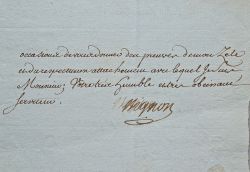 occasions de vous donner des preuves de mon Zele
et du respectueux attachement avec lequel Je suis
Monsieur, Votre très humble et très obeissant
Serviteur.
Bignon